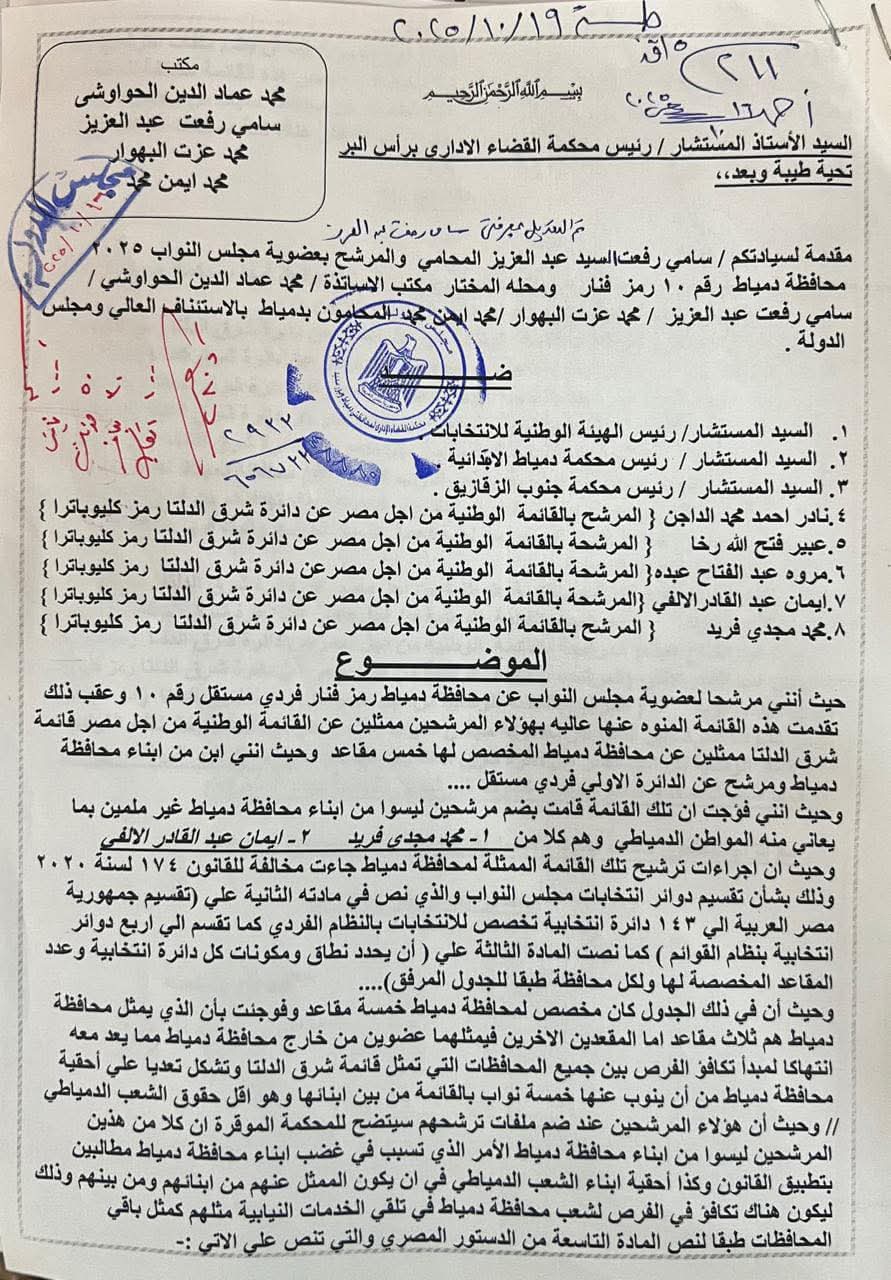 جلسة ٢٠٢٥/١٠/١٩
٢١١
مكتب
محمد عماد الدين الحواوشى
سامي رفعت عبد العزيز
محمد عزت البهوار
محمد ايمن محمد
بسم الله الرحمن الرحيم
السيد الأستاذ المستشار / رئيس محكمة القضاء الادارى برأس البر
تحية طيبة وبعد،،
مجلس الدولة
تم التعديل بمعرفتى سامى رفعت عبد العزيز
مقدمة لسيادتكم / سامي رفعت السيد عبد العزيز المحامي والمرشح بعضوية مجلس النواب ٢٠٢٥
محافظة دمياط رقم ١٠ رمز فنار ومحله المختار مكتب الاساتذة / محمد عماد الدين الحواوشي /
سامي رفعت عبد العزيز / محمد عزت البهوار /محمد ايمن محمد المحامون بدمياط بالاستئناف العالي ومجلس
الدولة .
ضـــــــــد
٢٩٢٢
١. السيد المستشار/ رئيس الهيئة الوطنية للانتخابات .
٢. السيد المستشار / رئيس محكمة دمياط الابتدائية .
٣. السيد المستشار / رئيس محكمة جنوب الزقازيق .
٤.نادر احمد محمد الداجن { المرشح بالقائمة الوطنية من اجل مصر عن دائرة شرق الدلتا رمز كليوباترا }
٥.عبير فتح الله رخا { المرشحة بالقائمة الوطنية من اجل مصر عن دائرة شرق الدلتا رمز كليوباترا }
٦.مروه عبد الفتاح عبده{ المرشحة بالقائمة الوطنية من اجل مصر عن دائرة شرق الدلتا رمز كليوباترا }
٧.ايمان عبد القادرالالفي {المرشحة بالقائمة الوطنية من اجل مصر عن دائرة شرق الدلتا رمز كليوباترا }
٨.محمد مجدي فريد { المرشح بالقائمة الوطنية من اجل مصر عن دائرة شرق الدلتا رمز كليوباترا }
الموضــــــــــوع
حيث أنني مرشحا لعضوية مجلس النواب عن محافظة دمياط رمز فنار فردي مستقل رقم ١٠ وعقب ذلك
تقدمت هذه القائمة المنوه عنها عاليه بهؤلاء المرشحين ممثلين عن القائمة الوطنية من اجل مصر قائمة
شرق الدلتا ممثلين عن محافظة دمياط المخصص لها خمس مقاعد وحيث انني ابن من ابناء محافظة
دمياط ومرشح عن الدائرة الاولي فردي مستقل ....
وحيث انني فؤجت ان تلك القائمة قامت بضم مرشحين ليسوا من ابناء محافظة دمياط غير ملمين بما
يعاني منه المواطن الدمياطي وهم كلا من ١- محمد مجدي فريد ٢- ايمان عبد القادر الالفي
وحيث ان اجراءات ترشيح تلك القائمة الممثلة لمحافظة دمياط جاءت مخالفة للقانون ١٧٤ لسنة ٢٠٢٠
وذلك بشأن تقسيم دوائر انتخابات مجلس النواب والذي نص في مادته الثانية علي (تقسيم جمهورية
مصر العربية الي ١٤٣ دائرة انتخابية تخصص للانتخابات بالنظام الفردي كما تقسم الي اربع دوائر
انتخابية بنظام القوائم ) كما نصت المادة الثالثة علي ( أن يحدد نطاق ومكونات كل دائرة انتخابية وعدد
المقاعد المخصصة لها ولكل محافظة طبقا للجدول المرفق)....
وحيث أن في ذلك الجدول كان مخصص لمحافظة دمياط خمسة مقاعد وفوجئت بأن الذي يمثل محافظة
دمياط هم ثلاث مقاعد اما المقعدين الاخرين فيمثلهما عضوين من خارج محافظة دمياط مما يعد معه
انتهاكا لمبدأ تكافؤ الفرص بين جميع المحافظات التي تمثل قائمة شرق الدلتا وتشكل تعديا علي أحقية
محافظة دمياط من أن ينوب عنها خمسة نواب بالقائمة من بين ابنائها وهو اقل حقوق الشعب الدمياطي
// وحيث أن هؤلاء المرشحين عند ضم ملفات ترشحهم سيتضح للمحكمة الموقرة ان كلا من هذين
المرشحين ليسوا من ابناء محافظة دمياط الأمر الذي تسبب في غضب ابناء محافظة دمياط مطالبين
بتطبيق القانون وكذا أحقية ابناء الشعب الدمياطي في ان يكون الممثل عنهم من ابنائهم ومن بينهم وذلك
ليكون هناك تكافؤ في الفرص لشعب محافظة دمياط في تلقي الخدمات النيابية مثلهم كمثل باقي
المحافظات طبقا لنص المادة التاسعة من الدستور المصري والتي تنص علي الاتي :-